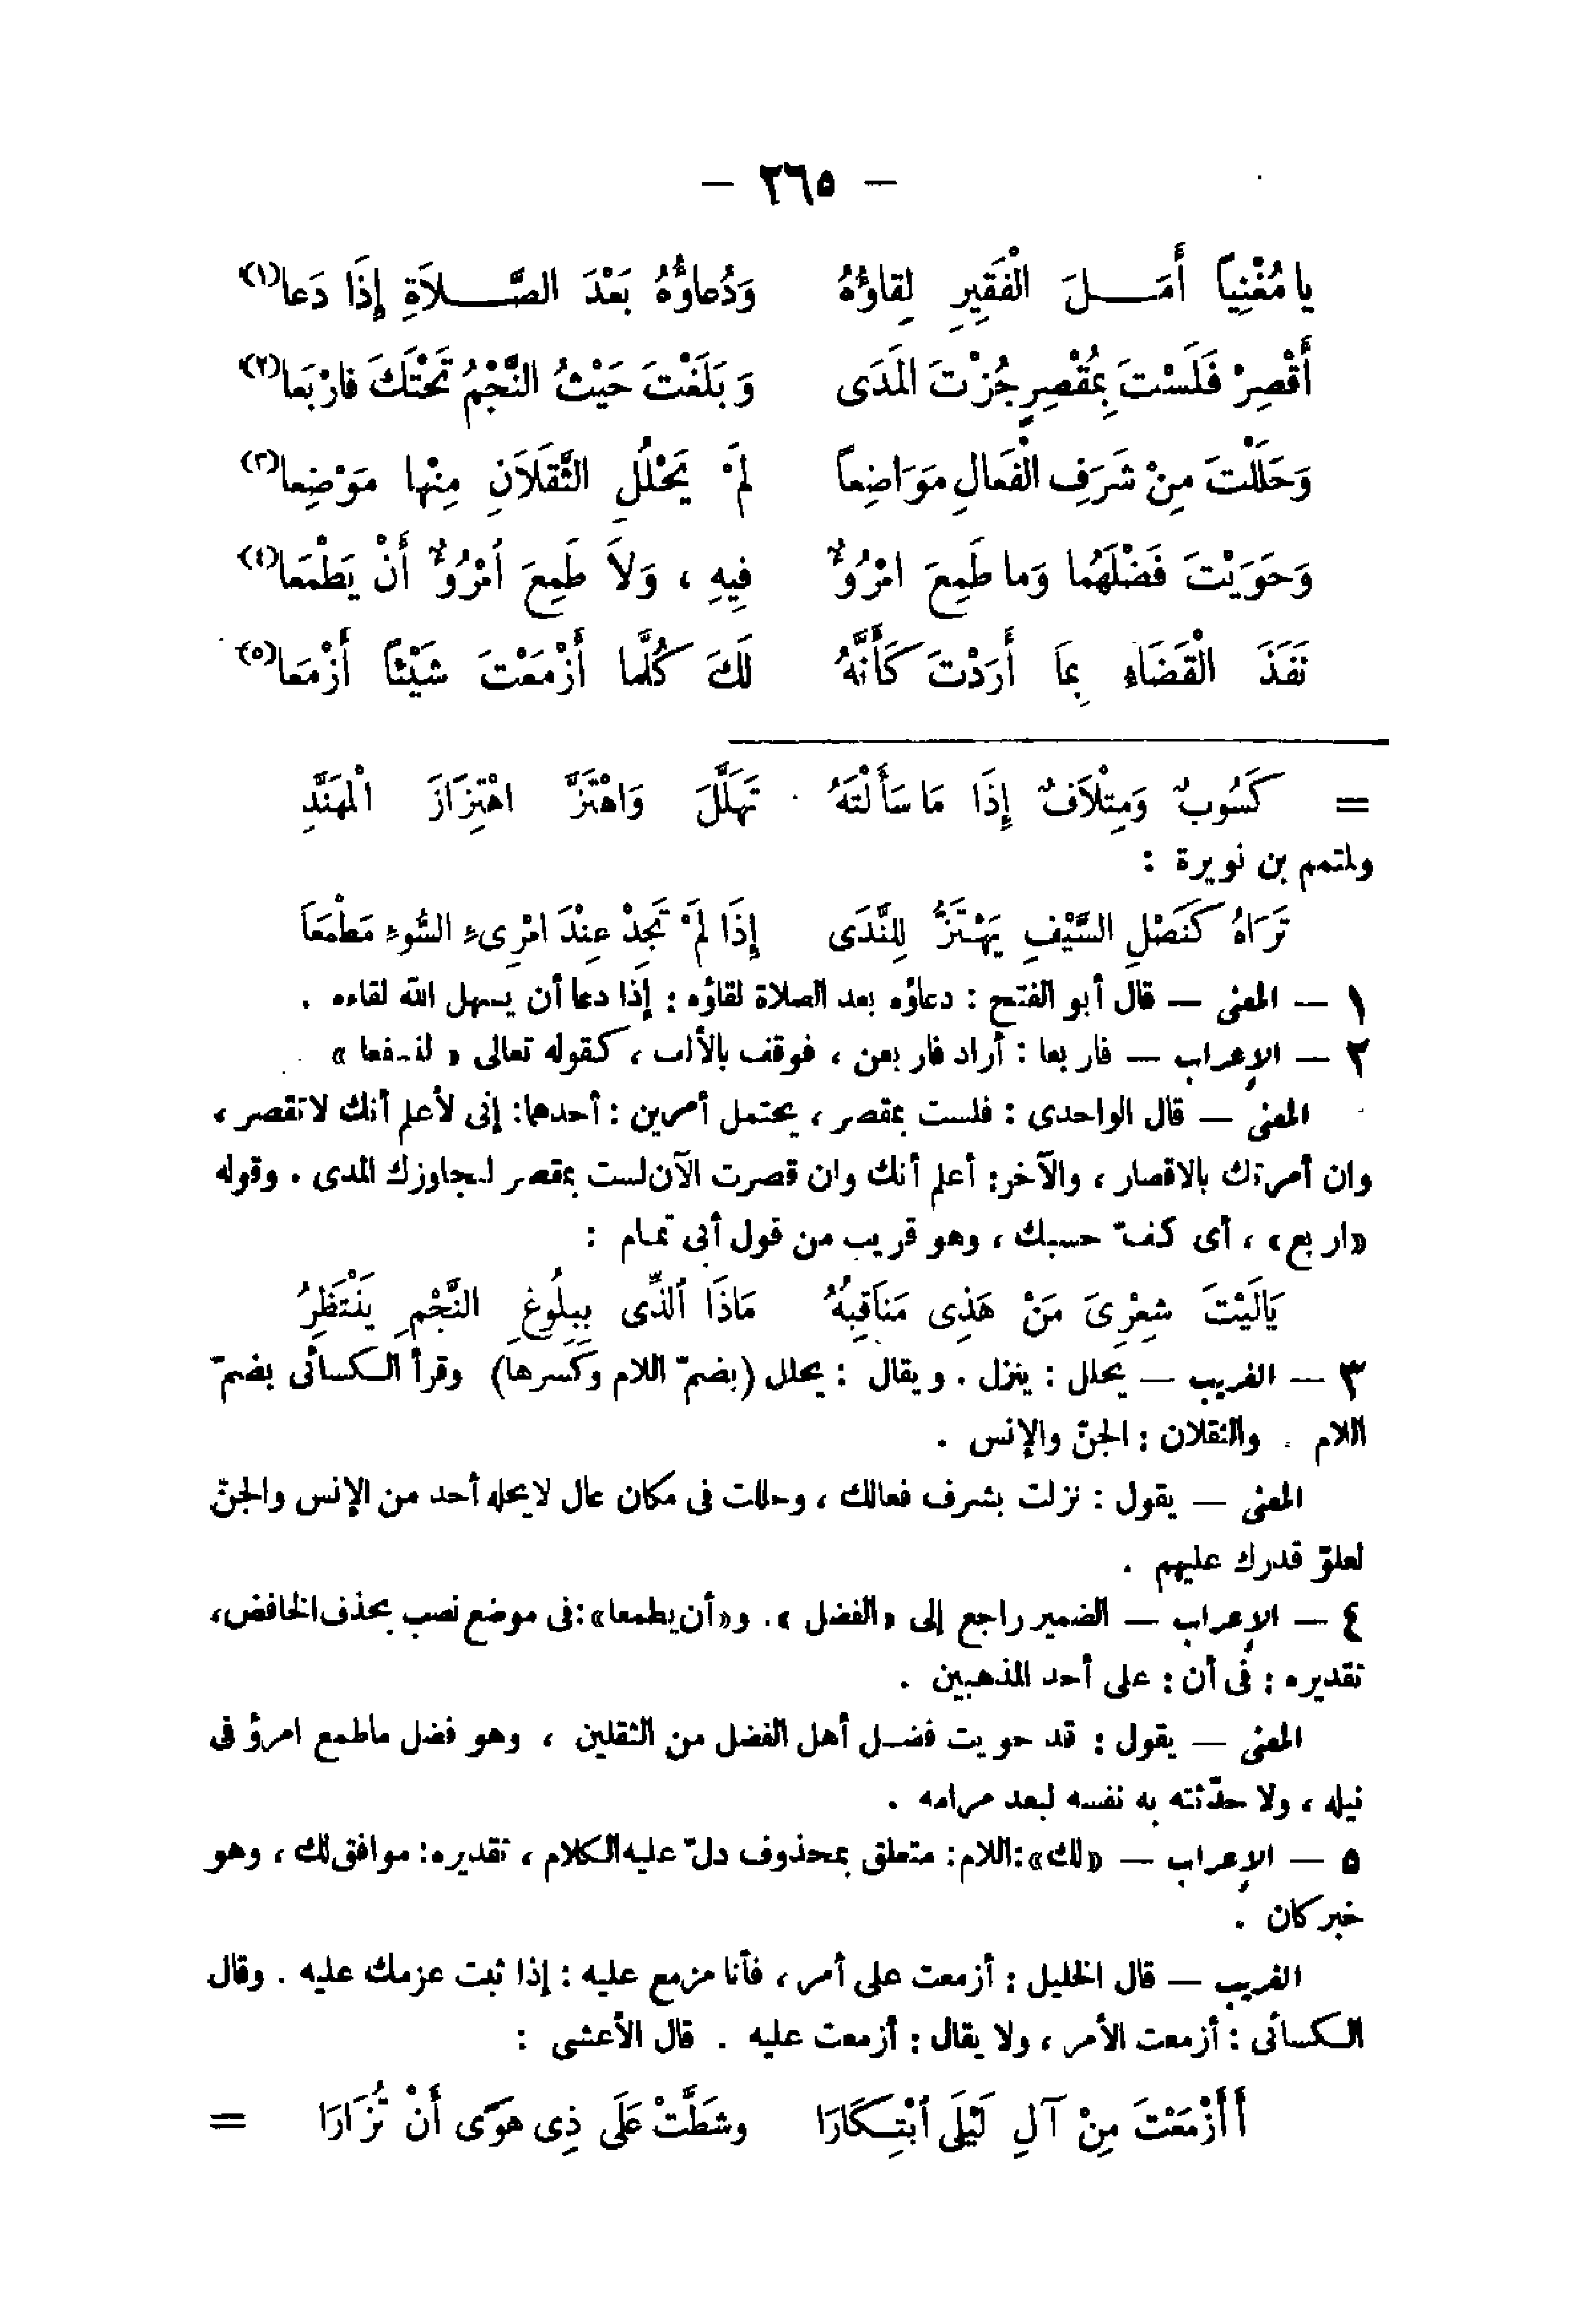 — ٢٦٥ —
يا مُغْنِياً أَمَـــلَ الْفَقِيرِ لِقاؤُهُ وَدُعاؤُهُ بَعْدَ الصَّـــلاَةِ إِذَا دَعا(١)
أَقْصِرْ فَلَسْتَ بِمُقْصِرٍ جُزْتَ المَدَى وَبَلَغْتَ حَيْثُ النَّجْمُ تَحْتَكَ فارْبَعا(٢)
وَحَلَلْتَ مِنْ شَرَفِ الْفَعالِ مَوَاضِعاً لَمْ يَحْلُلِ الثَّقَلاَنِ مِنْها مَوْضِعا(٣)
وَحَوَيْتَ فَضْلَهُما وَما طَمِعَ امْرُؤٌ فِيهِ ، وَلاَ طَمِعَ أمْرُؤٌ أَنْ يَطْمَعا(٤)
نَفَذَ الْقَضَاءِ بِمَا أَرَدْتَ كَأَنَّهُ لَكَ كُلَّما أَزْمَعْتَ شَيْئاً أَزْمَعا(٥)
= كَسُوبٌ وَمِتْلاَفٌ إِذَا مَا سَأَلْتَهُ تَهَلَّلَ وَاهْتَزَّ اهْتِزَازَ الْمهَنَّدِ
ولمتمم بن نويرة :
تَرَاهُ كَنَصْلِ السَّيْفِ يَهْتَزُّ لِلنَّدَى إِذَا لَمْ تَجِدْ عِنْدَ امْرِىءِ السُّوءِ مَطْمَعَا
١ — المعنى — قال أبو الفتح : دعاؤه بعد الصلاة لقاؤه : إذا دعا أن يسهل الله لقاءه .
٢ — الإعراب — فاربعا : أراد فاربعن ، فوقف بالألف ، كقوله تعالى « لنسفعا »
المعنى — قال الواحدى : فلست بمقصر ، يحتمل أمرين : أحدهما: إنى لأعلم أنك لاتقصر ،
وان أمرتك بالاقصار ، والآخر: أعلم أنك وان قصرت الآن لست بمقصر لتجاوزك المدى . وقوله
«اربع» ، أى كفّ حسبك ، وهو قريب من قول أبى تمام :
يَالَيْتَ شِعْرِىَ مَنْ هَذِى مَنَاقِبُهُ مَاذَا ٱلَّذِى بِبِلُوغِ النَّجْمِ يَنْتَظِرُ
٣ — الغريب — يحلل : ينزل . ويقال : يحلل (بضمّ اللام وكسرها) وقرأ الكسائى بضمّ
اللام . والثقلان : الجنّ والإنس .
المعنى — يقول : نزلت بشرف فعالك ، وحللت فى مكان عال لايحله أحد من الإنس والجنّ
لعلوّ قدرك عليهم .
٤ — الإعراب — الضمير راجع إلى «الفضل » . و«أن يطمعا»: فى موضع نصب بحذف الخافض،
تقديره : فى أن : على أحد المذهبين .
المعنى — يقول : قد حويت فضـل أهل الفضل من الثقلين ، وهو فضل ماطمع امرؤ فى
نيله ، ولا حدّثته به نفسه لبعد مرامه .
٥ — الإعراب — «لك»: اللام: متعلق بمحذوف دلّ عليه الكلام ، تقديره: موافق لك ، وهو
خبر كان .
الغريب — قال الخليل : أزمعت على أمر ، فأنا مزمع عليه : إذا ثبت عزمك عليه . وقال
الكسائى : أزمعت الأمر ، ولا يقال : أزمعت عليه . قال الأعشى :
أَأَزْمَعْتَ مِنْ آلِ لَيْلَى ٱبْتِكَارَا وشَطَّتْ عَلَى ذِى هَوًى أَنْ تُزَارَا =